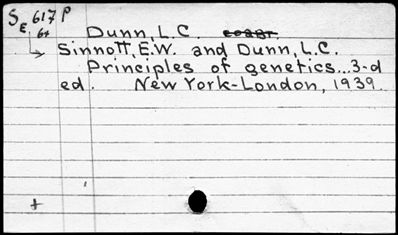 SE 617 P
64
Dunn, L.C.
Sinnott, E.W. and Dunn, L.C.
Principles of genetics...3-d
ed. New York-London, 1939.
+